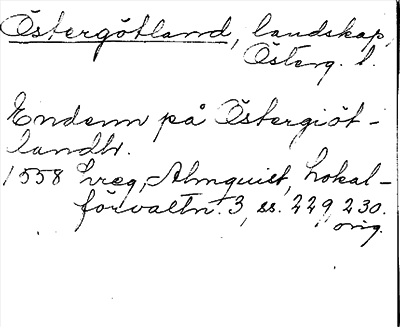 Östergötland, landskap,
Österg. l.
Endenn på Östergiöt-
landh.
1558 Lreg, Almquist, Lokal-
förvaltn. 3, ss. 229, 230.
orig.